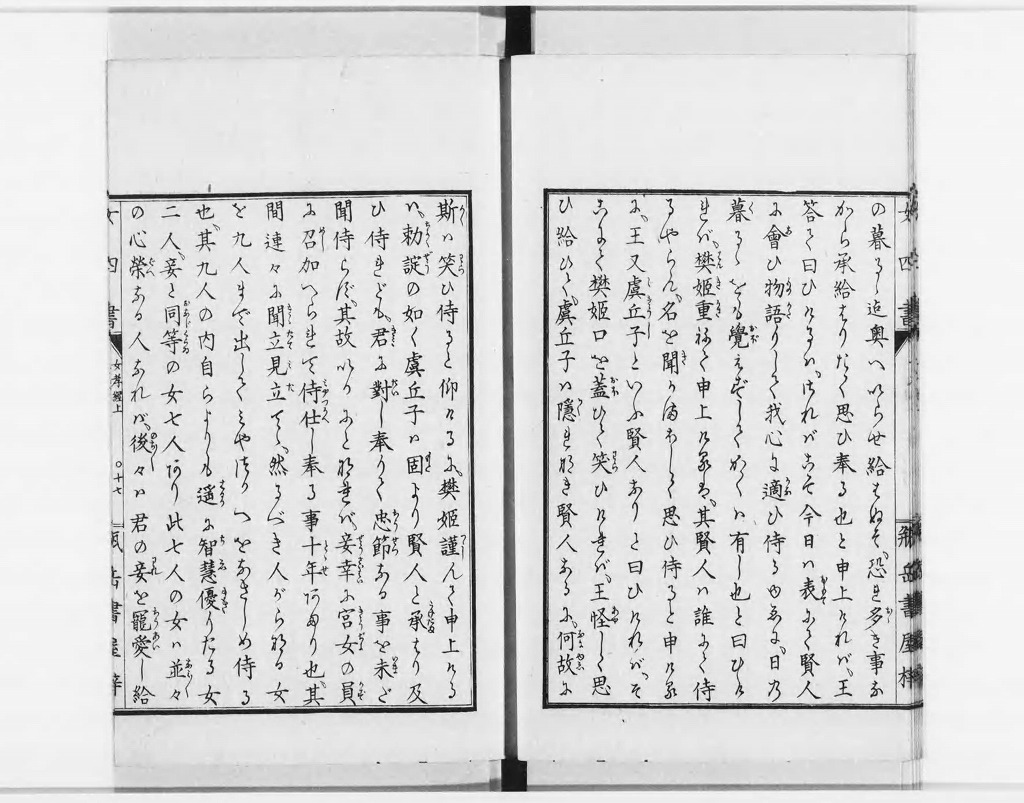 の暮るゝ迄奥へいらせ給はぬぞ恐れ多き事な
がら承給はりたく思ひ奉る也と申上ければ王
答て曰ひけるハさればこそ今日ハ表にて賢人
に會ひ物語りして我心に適ひ侍るゆゑに日の
暮るゝをも覺えずしてかくハ有し也と曰ひけ
れば樊姫重ねて申上ける樣其賢人ハ誰にて侍
るやらん名を聞かまほしく思ひ侍ると申ける
に王又虞丘子といふ賢人なりと曰ひければそ
こにて樊姫口を蓋ひて笑ひければ王怪しく思
ひ給ひて虞丘子ハ隠れなき賢人なるに何故に
斯ハ笑ひ侍ると仰ける に樊姫謹んで申上ける
ハ勅諚の如く虞丘子ハ固より賢人と承はり及
ひ侍れども君に對し奉りて忠節なる事を未だ
聞侍らず其故いかにとなれば妾幸に宮女の員
に召加へられて侍仕し奉る事十年あまり也其
間連々に聞立見立てゝ然るべき人がらなる女
を九人まで出してみやづかへをなさしめ侍る
也其九人の内自らよりも遥に智慧優りたる女
二人妾と同等の女七人あり此七人の女ハ並々
の心榮なる人なれば後々ハ君の妾を寵愛し給
女四書
女孝經上
〇十七